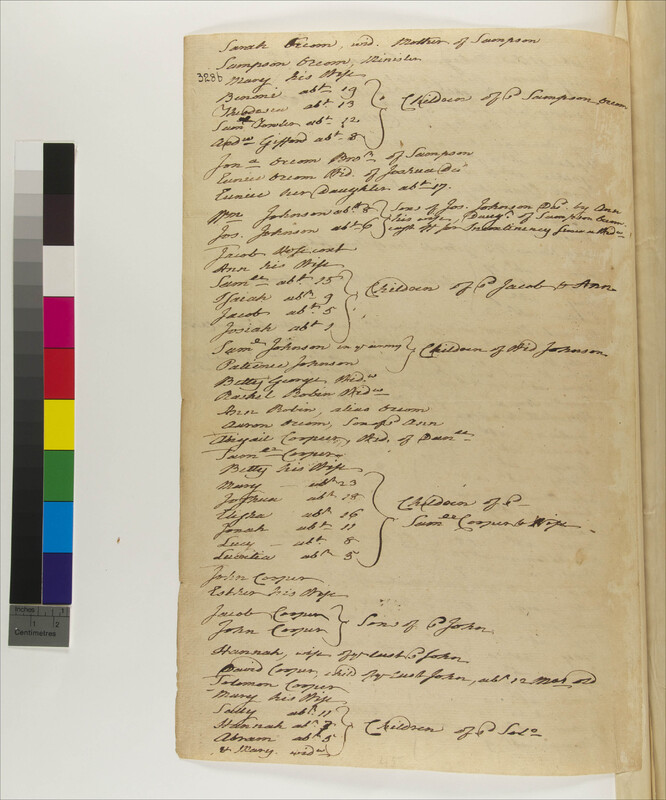 Sarah Occom, wid. Mother of Sampson
Sampson Occom, Minister
328b
Mary his Wife
Benoni abt 19
Theodosia abt 13
Saml Fowler abt 12
Andw Gifford abt 8
Children of sd Sampson Occom
Jona Occom Bror of Sampson
Eunice Occom Wid. of Joshua Decd
Eunice her Daughter abt 17.
Wm Johnson abt 8
Jos. Johnson abt 6
Sons of Jos. Johnson Decd by Ann
his wife, Daugr of Sampson Occom
cast off for Incontinency
Jacob Hoscoat
Ann his Wife
Samll abt 15
Isaiah abt 9
Jacob abt 5
Josiah abt 1
Children of sd Jacob & Ann
Saml Johnson in ye army
Patience Johnson
Children of Wid Johnson
Betty George Widw
Rachel Robin Widw
Ann Robin, alias Occom
Aaron Occom, Son of sd Ann
Abigail Cooper, Wid. of Danll
Samll Cooper
Betty his Wife
Mary abt 23
Joshua abt 18
Elisha abt 16
Jonah abt 11
Lucy abt 8
Lucretia abt 5
Children of sd
Samll Cooper & Wife
John Cooper
Esther his Wife
Jacob Cooper
John Cooper
Sons of sd John
Hannah, wife of ye last sd John
David Cooper, child of ye last John, abt 12 Mos old
Solomon Cooper
Mary his Wife
Sally abt 11
Hannah abt 7
Abram abt 5
& Mary widw
Children of sd Solo